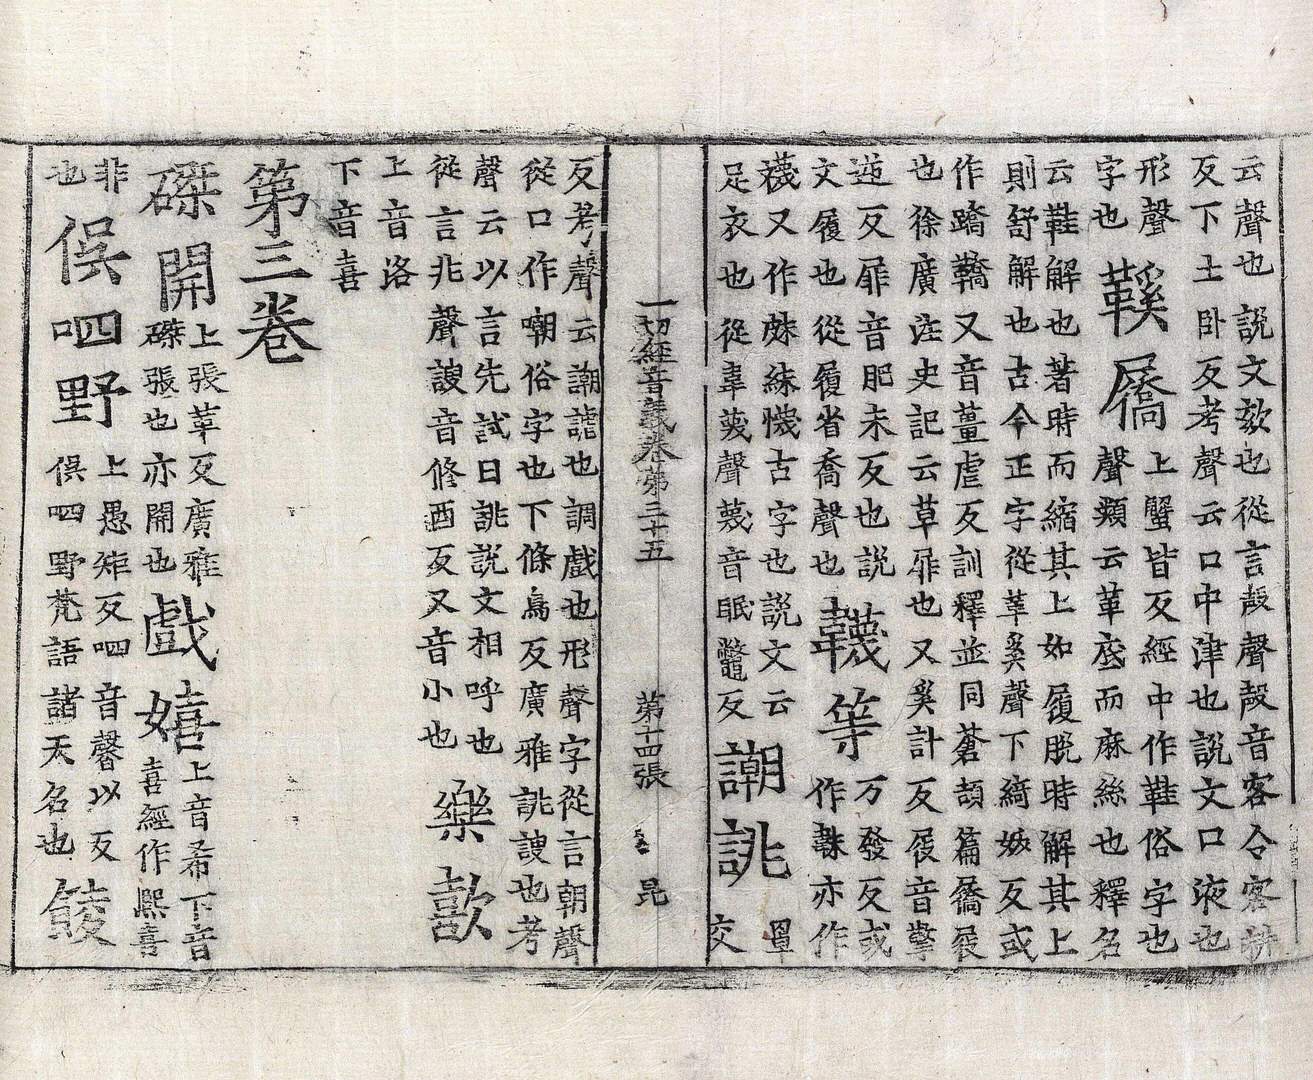 云聲也説文欬也從言殸聲殸音客令客耕
反下土卧反考聲云口中津也説文口液也
形聲
字也
鞵屩
上蟹皆反經中作鞋俗字也
聲類云革底而麻絲也釋名
云鞋解也著時而縮其上如履脱時解其上
則舒解也古今正字從革奚聲下綺妭反或
作蹻鞽又音薑虐反訓釋並同蒼頡篇屩屐
也徐廣注史記云草屝也又奚計反屐音擎
逆反屝音肥未反也説
文履也從履省喬聲也
韈等
万發反或
作亦作
襪又作古字也説文云
足衣也從韋蔑聲蔑音眠鼈反
謿誂
罩
交
一切經音義卷第三十五 第十四張 昆
反考聲云謿謔也調戲也形聲字從言朝聲
從口作嘲俗字也下條鳥反廣雅誂謏也考
聲云以言先試曰誂説文相呼也
從言兆聲謏音修酉反又音小也
樂歖
上音洛
下音喜
第三卷
磔開
上張革反廣雅
磔張也亦開也
戲嬉
上音希下音
喜經作熈喜
非
也
俁呬野
上愚矩反呬音馨以反
俁呬野梵語諸天名也